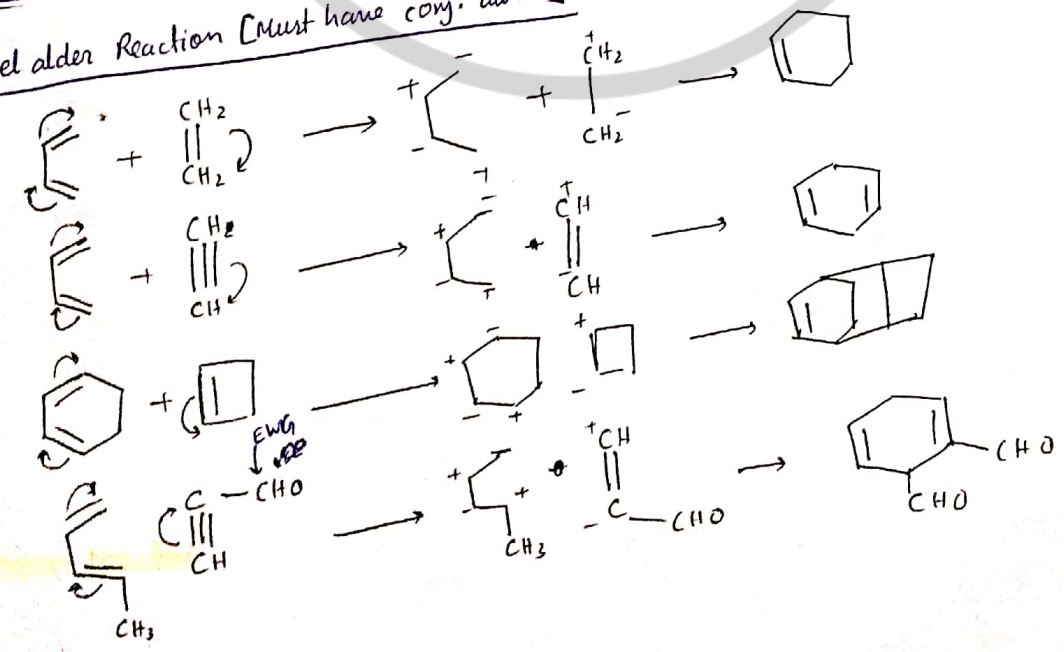 el alder Reaction [Must have conj.
CH2 + CH2 → + - - + +CH2 CH2- →
+ CH2 CH → + - - + +CH -CH →
+ → + - - + + - →
EWG
C — CHO + CH → + - + CH3 +CH -C — CHO → CHO CHO
CH3